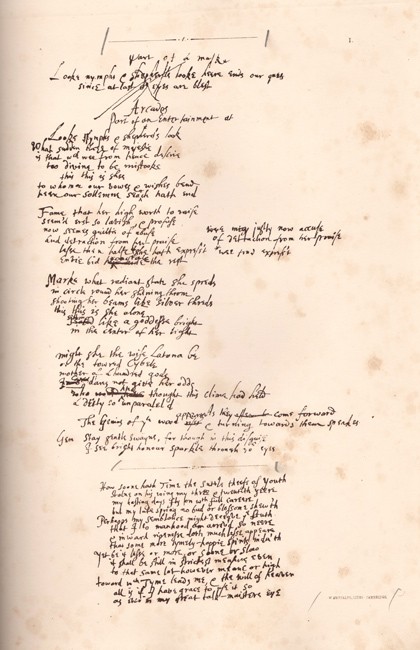 1.
Part of a maske
Looke nymphs & shepheards looke heere ends our quest
since at last or eyes are blest
Arcades
Part of an Entertainment at
Looke Nymphs & shepherds look
What sudden blaze of majestie
is that wch wee from hence descrie
too divine to be mistooke
this this is shee
to whome our vowes & wishes bend
heere our sollemne search hath end
Fame that her high worth to raise
seem'd erst so lavish & profuse
now seems guiltie of abuse
and detraction from her praise
lesse then halfe she hath exprest
Envie bid the rest
wee may justly now accuse
of detraction from her praise
wee find exprest
Marke what radiant state she spreds
in circle round her shining throne
shooting her beams like silver threds
this this is she alone
sitting like a goddesse bright
in the center of her light
might she the wise Latona be
or the towred Cybele
mother of a hundred gods
dare not give her odds
who had thought this clime had held
a deity so unparalel'd
The Genius of ye wood appeares come forward
& turning towards them speakes
Gen Stay gentle swayns, for though in this disguise
I see bright honour sparkle through yor eyes
How soone hath Time the suttle theefe of Youth
stolne on his wing my three & twentith yeere
my hasting days fly on with full careere
but my late spring no bud or blossome shew'th
Perhapps my semblance might deceave ye truth
that I to manhood am arriv'd so neere
& inward ripenesse doth much lesse appeare
that some more tymely-happie spirits indu'th
Yet be it lesse or more, or soone or slow
it shall be still in strictest measure even
to that same lot however meane or high
toward wch Tyme leads me, & the will of heaven
all is if I have grace to use it so
as ever in my great task-maisters eye